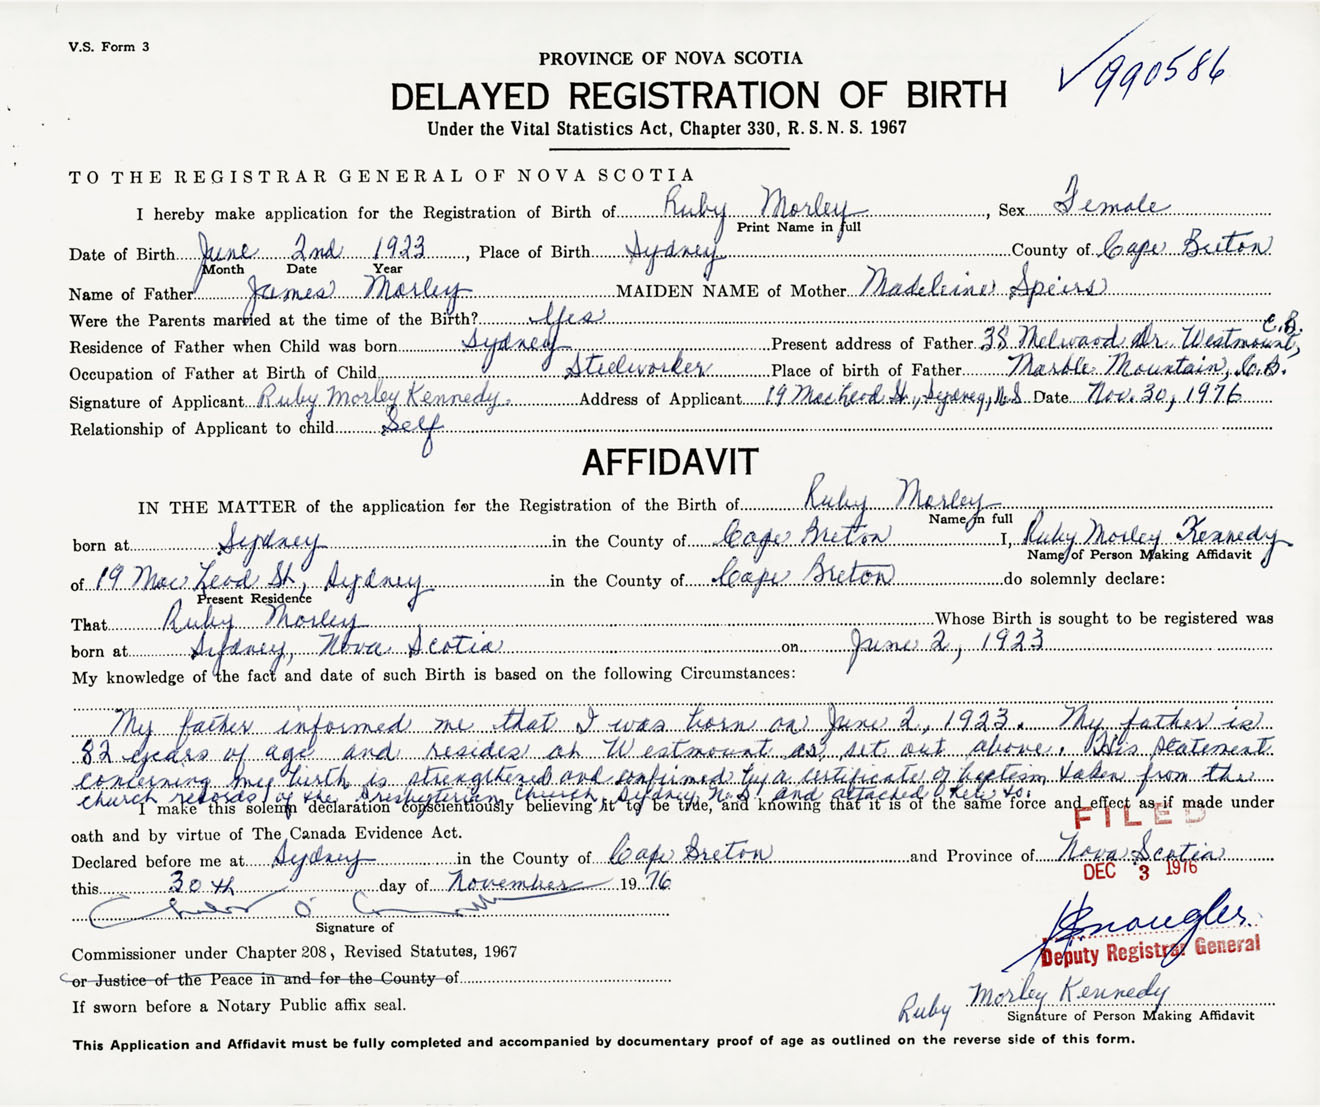 V.S. Form 3
PROVINCE OF NOVA SCOTIA
990586
DELAYED REGISTRATION OF BIRTH
Under the Vital Statistics Act, Chapter 330, R. S. N. S. 1967
TO THE REGISTRAR GENERAL OF NOVA SCOTIA
I hereby make application for the Registration of Birth of Ruby Morley, Sex Female
Print Name in full
Date of Birth June 2nd 1923, Place of Birth Sydney County of Cape Breton
Month Date Year
Name of Father James Morley MAIDEN NAME of Mother Madeleine Speirs
Were the Parents married at the time of the Birth? Yes
Residence of Father when Child was born Sydney Present address of Father 38 Melwood Dr. Westmount, C.B.
Occupation of Father at Birth of Child Steelworker Place of birth of Father Marble Mountain, C.B.
Signature of Applicant Ruby Morley Kennedy. Address of Applicant 19 MacLeod St., Sydney, N.S. Date Nov. 30, 1976
Relationship of Applicant to child Self
AFFIDAVIT
IN THE MATTER of the application for the Registration of the Birth of Ruby Morley
Name in full
born at Sydney in the County of Cape Breton I, Ruby Morley Kennedy
Name of Person Making Affidavit
of 19 MacLeod St., Sydney in the County of Cape Breton do solemnly declare:
Present Residence
That Ruby Morley Whose Birth is sought to be registered was
born at Sydney, Nova Scotia on June 2, 1923
My knowledge of the fact and date of such Birth is based on the following Circumstances:
My father informed me that I was born on June 2, 1923. My father is
82 years of age and resides at Westmount as set out above. His statement
concerning my birth is strengthened and confirmed by a certificate of baptism taken from the
church records of the Presbyterian Church, Sydney N.S. and attached hereto.
I make this solemn declaration conscientiously believing it to be true, and knowing that it is of the same force and effect as if made under
oath and by virtue of The Canada Evidence Act.
FILED
Declared before me at Sydney in the County of Cape Breton and Province of Nova Scotia
DEC 3 1976
this 30th day of November 1976
Signature of
Commissioner under Chapter 208, Revised Statutes, 1967
Deputy Registrar General
or Justice of the Peace in and for the County of
Ruby Morley Kennedy
If sworn before a Notary Public affix seal.
Signature of Person Making Affidavit
This Application and Affidavit must be fully completed and accompanied by documentary proof of age as outlined on the reverse side of this form.